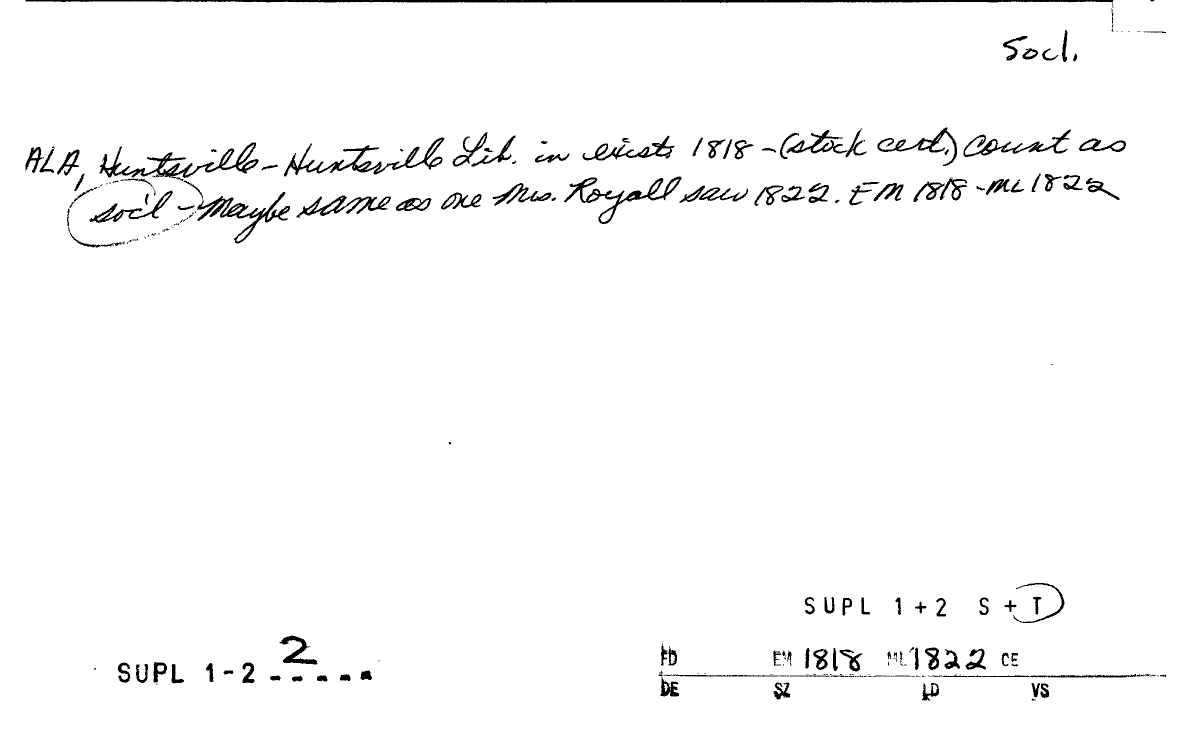 Socl.
ALA, Huntsville - Huntsville Lib. in exists 1818 - (stock cert.) Count as
soc'l - Maybe same as one Mrs. Royall saw 1822. EM 1818 - ML 1822
SUPL 1+2 S+T
SUPL 1-2 2
FD EM 1818 ML 1822 CE
DE SZ LD VS